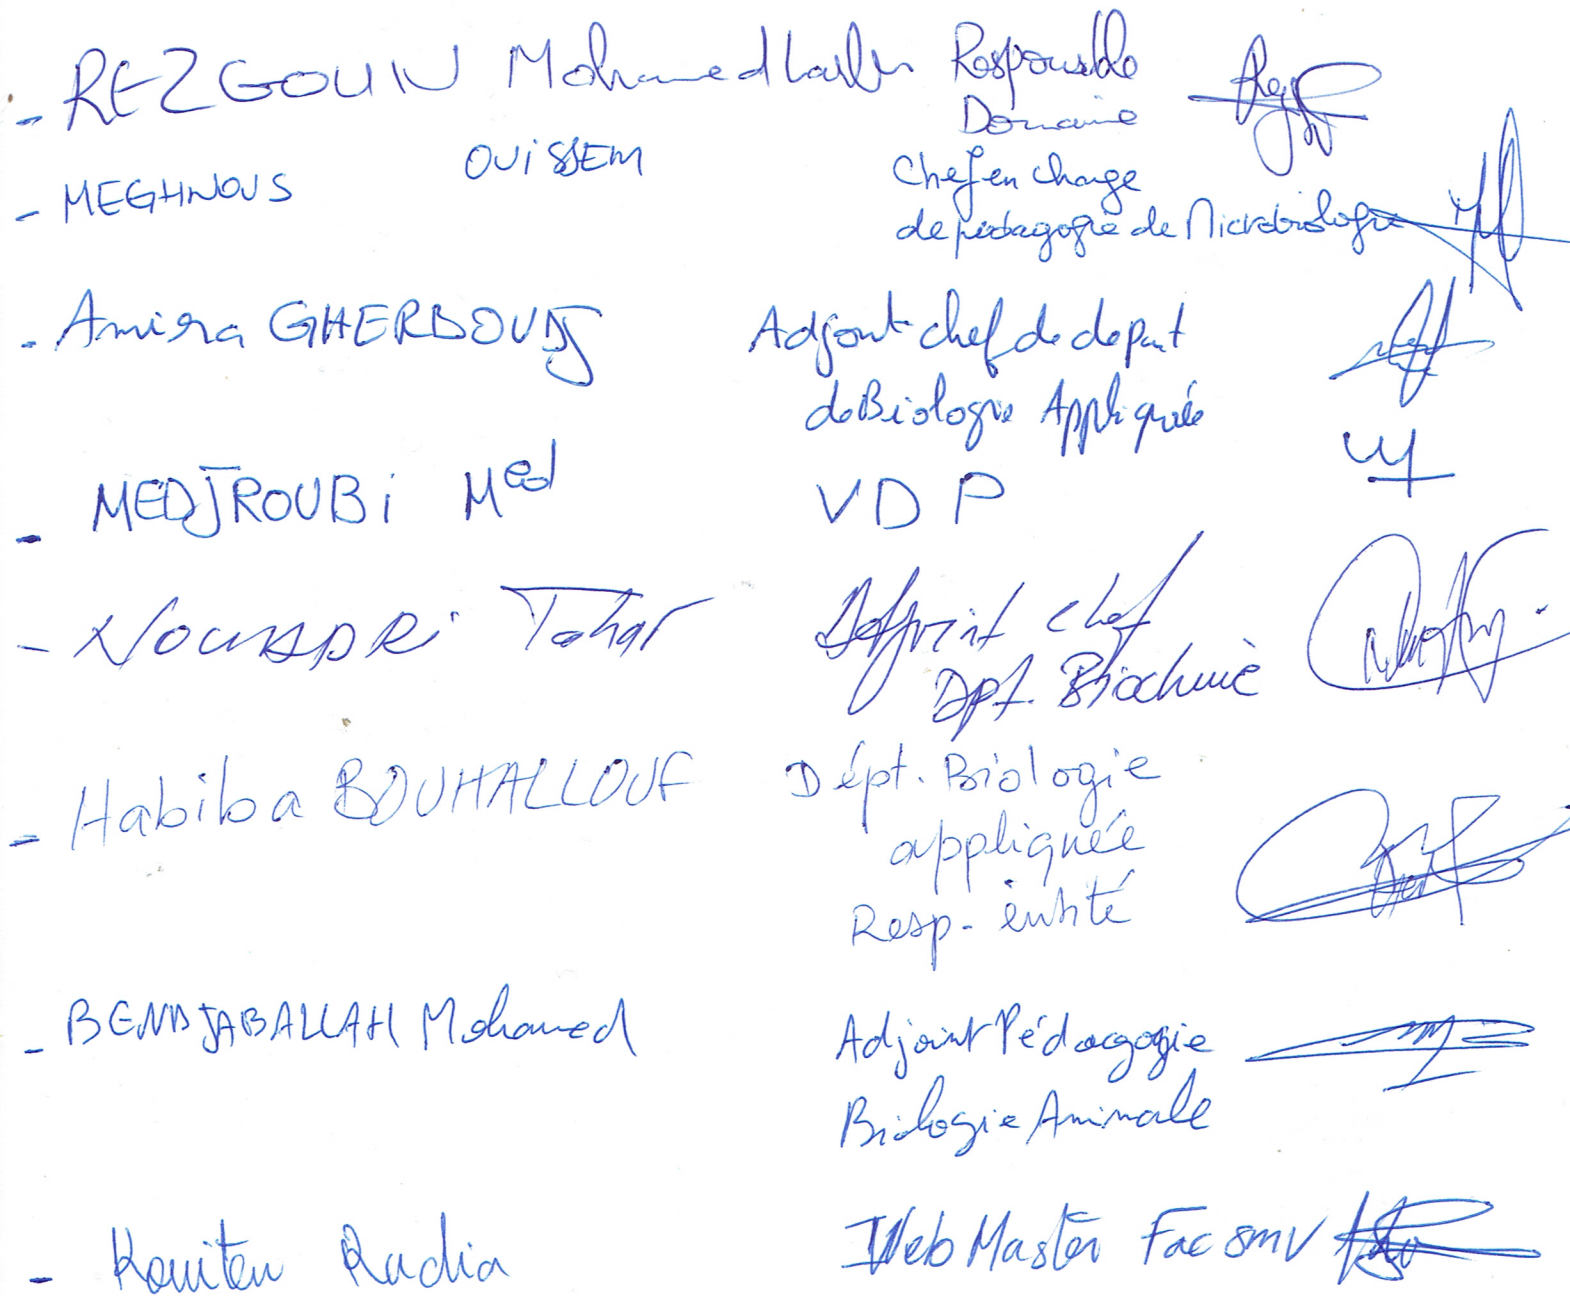 - REZGOUN Mohamed Larbi Responsable
Domaine
- MEGHNOUS OUiSSEM Chef en charge
de pédagogie de Microbiologie
- Amira GHERBOUDJ Adjoint chef de depart
de Biologie Appliquée
- MEDJROUBi Med VDP
- NOUADRi Tahar Adjoint chef
Dpt. Biochimie
- Habiba BOUHALLOUF Dépt. Biologie
appliquée
Resp. entité
- BENDJABALLAH Mohamed Adjoint Pédagogie
Biologie Animale
- Radia Web Master Fac SNV